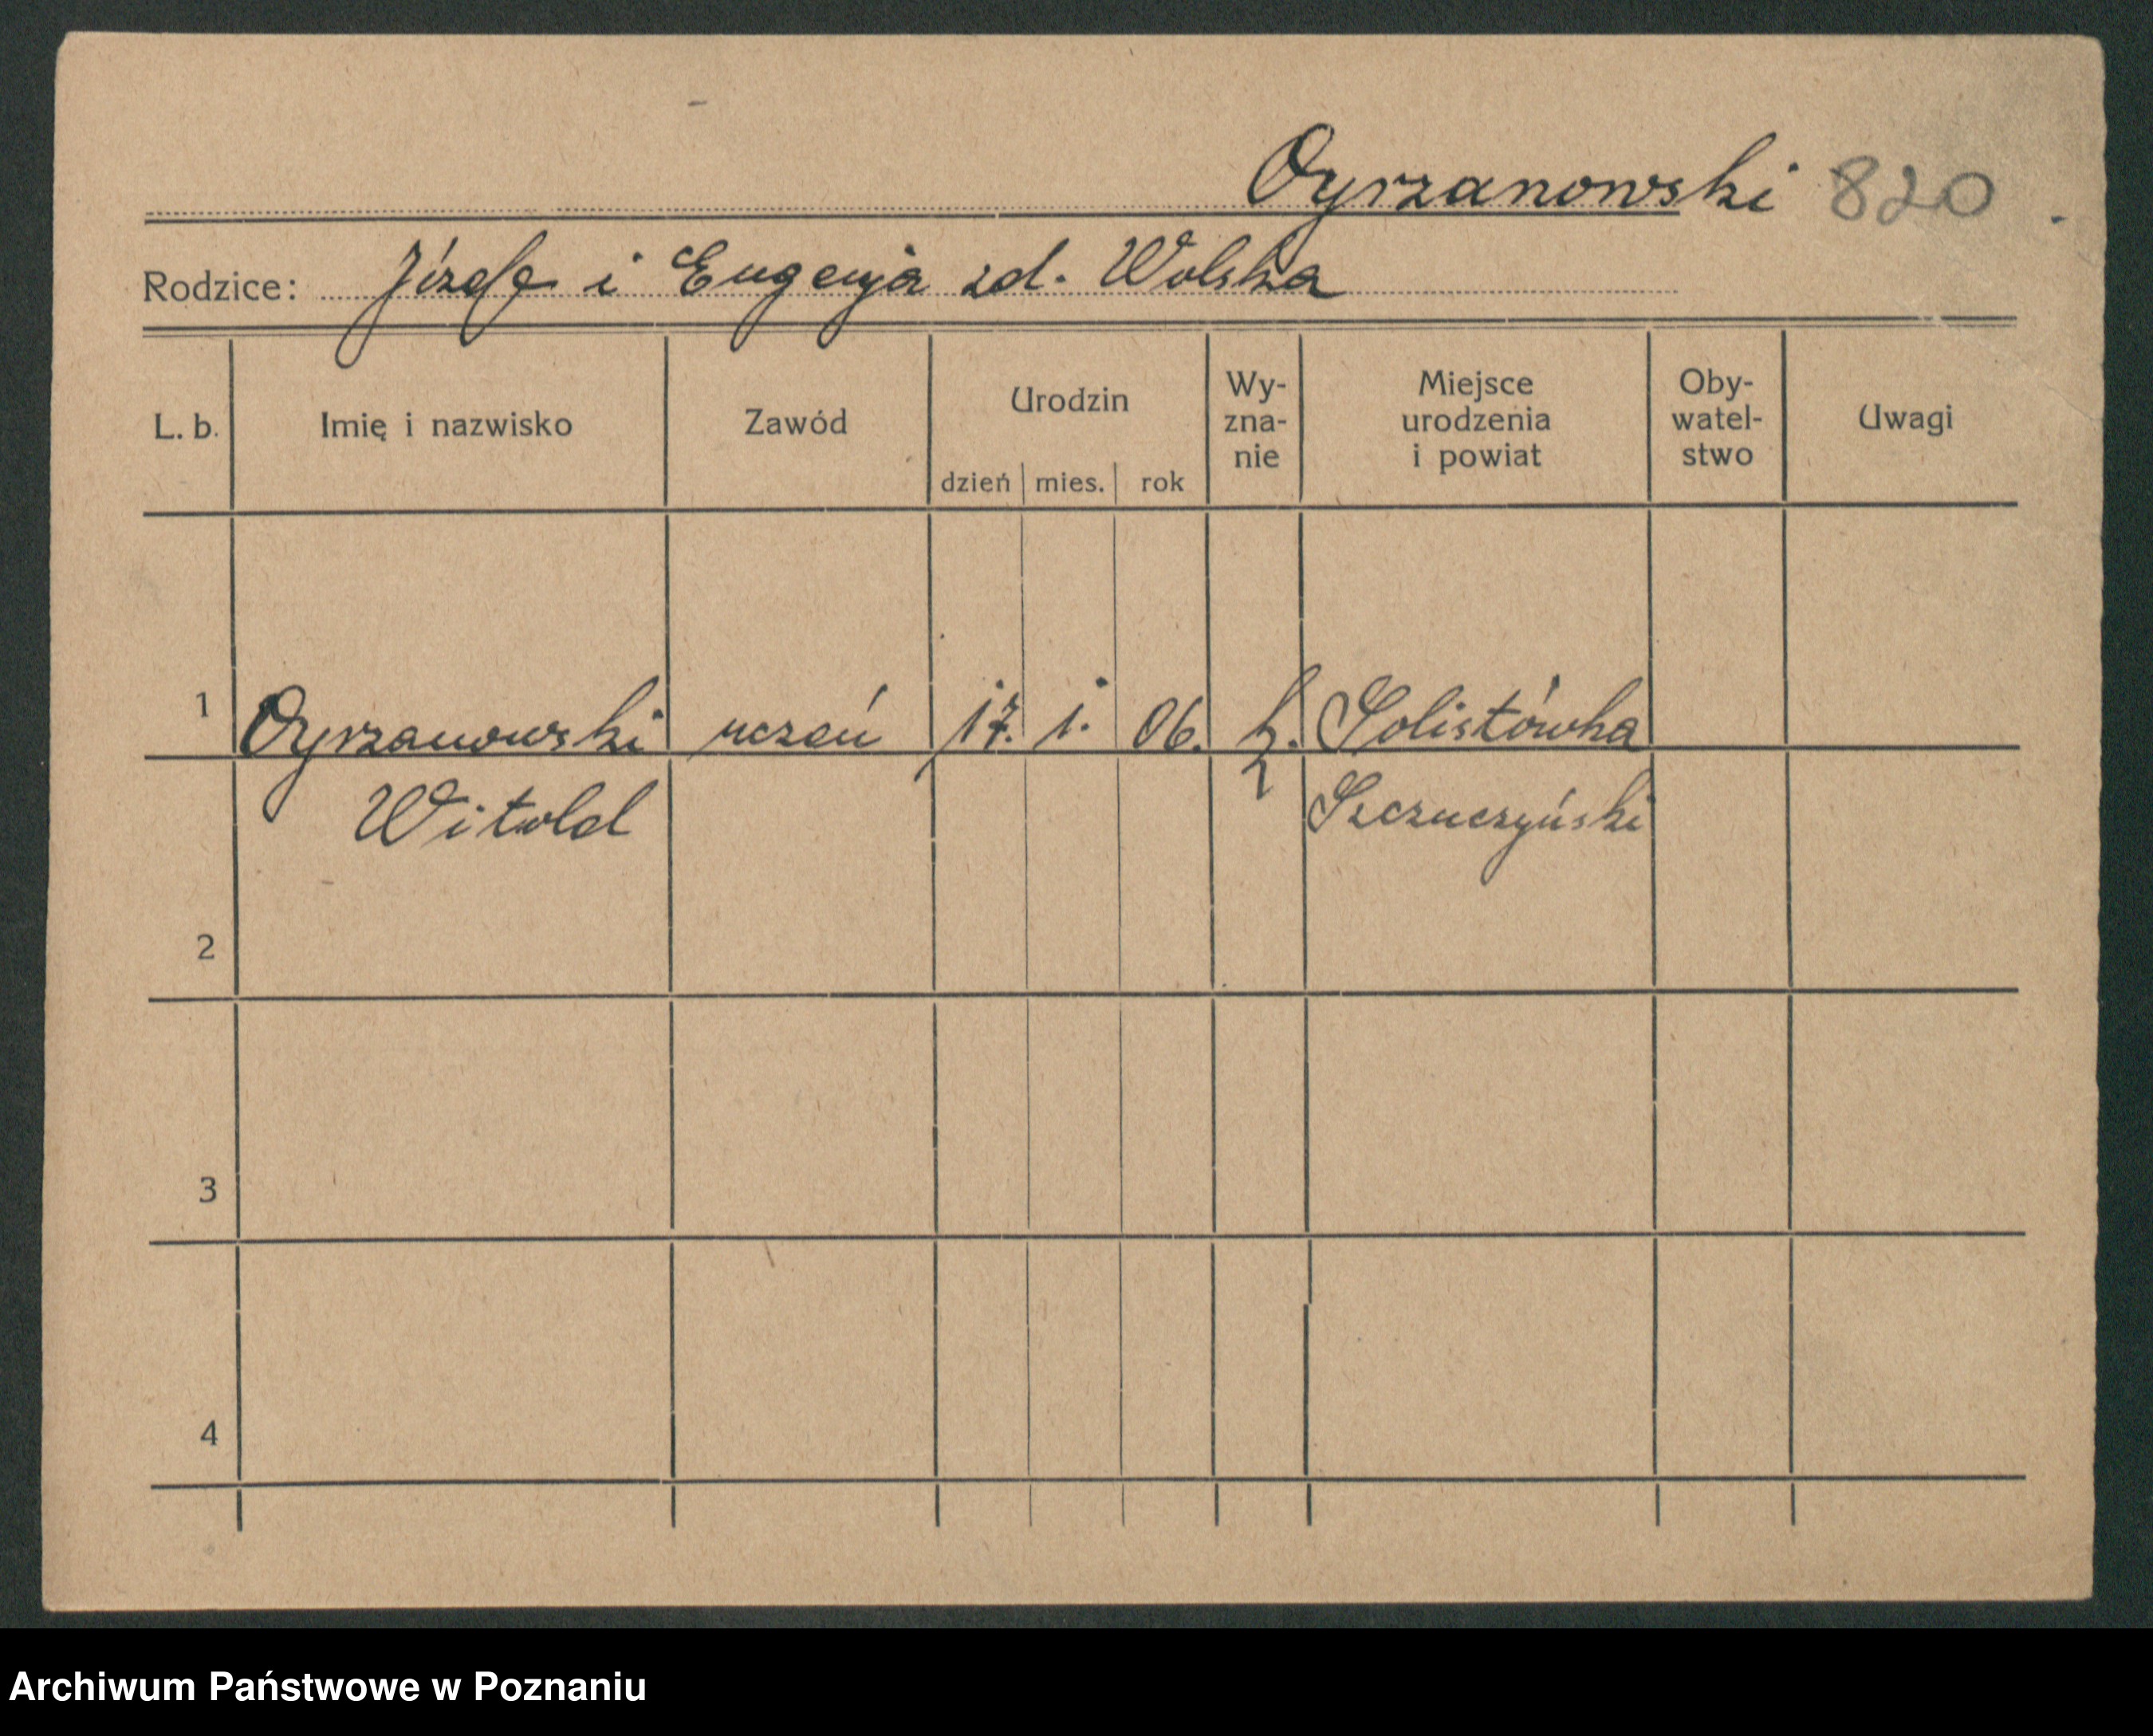 Oyrzanowski 820
Rodzice: Józefa i Eugenja zd. Wolska
L. b. Imię i nazwisko Zawód Urodzin dzień mies. rok Wy-zna-nie Miejsce urodzenia i powiat Oby-watel-stwo Uwagi
1 Oyrzanowski uczeń 17. 1. 06. k. Solistówka
Witold Szczuczyński
2
3
4
Archiwum Państwowe w Poznaniu